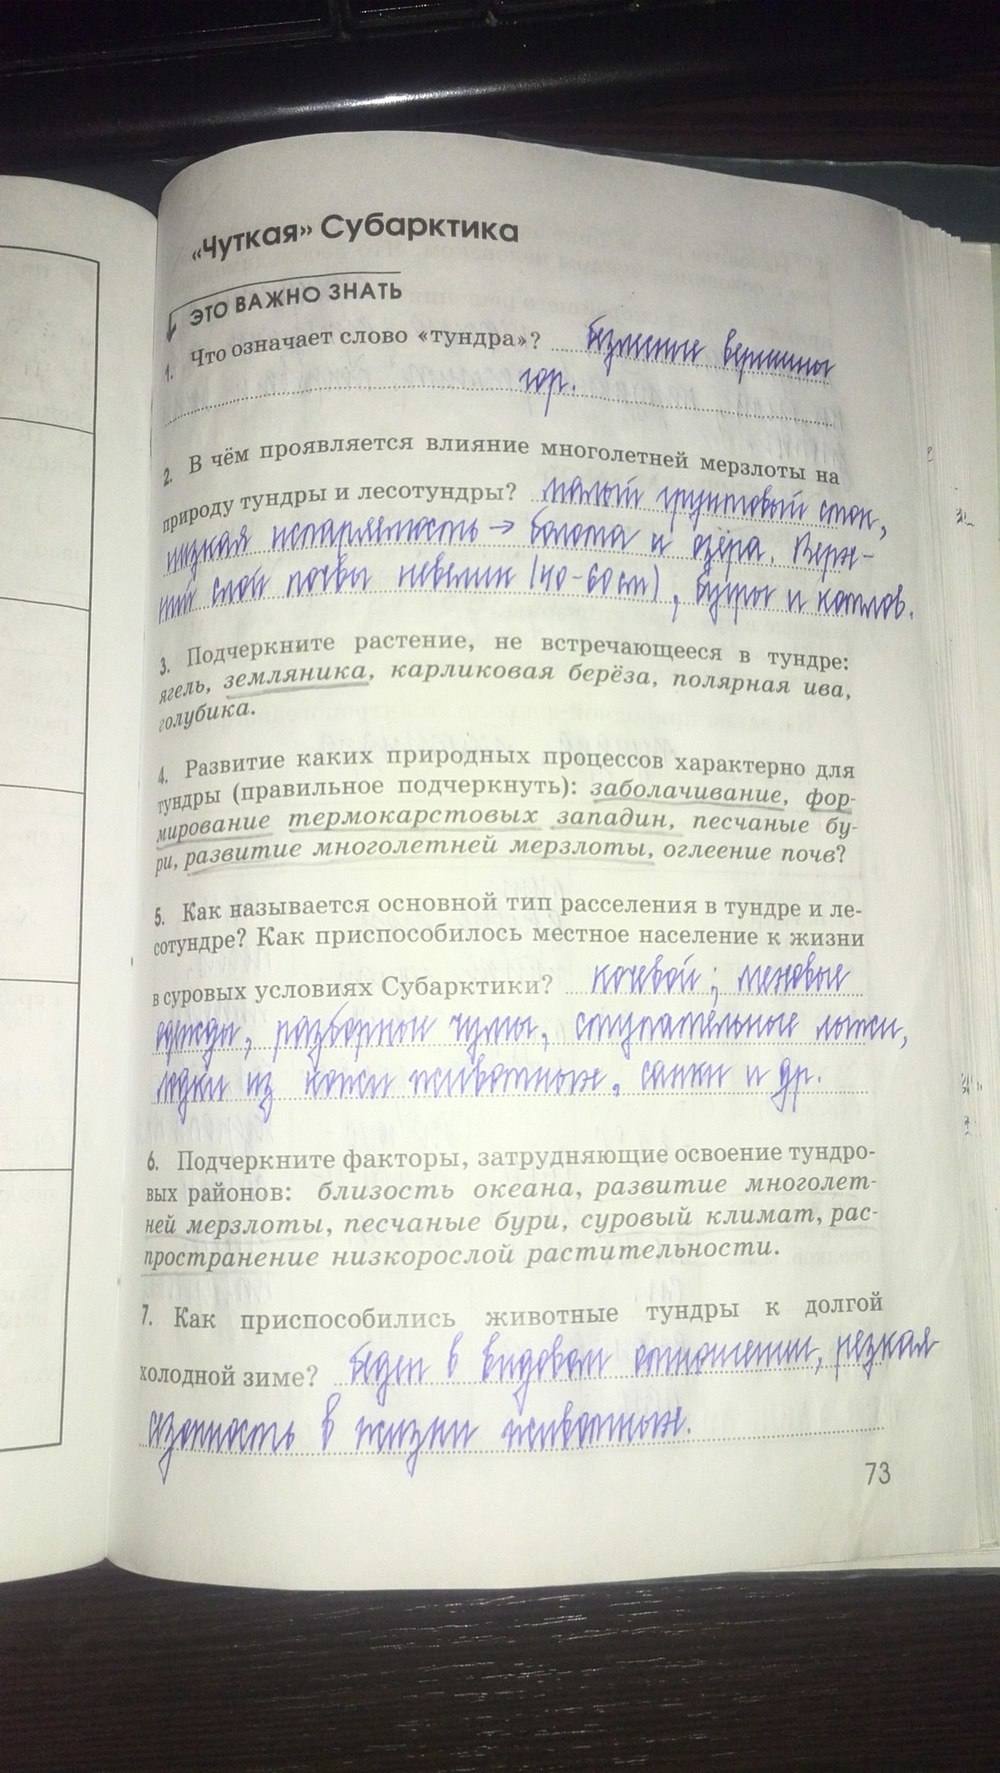 «Чуткая» Субарктика
ЭТО ВАЖНО ЗНАТЬ
1. Что означает слово «тундра»? безлесные вершины
гор.
2. В чём проявляется влияние многолетней мерзлоты на
природу тундры и лесотундры? малый грунтовый сток,
низкая испаряемость → болота и озёра. Верх-
ний слой почвы невелик (40-60 см), бугры и котлов.
3. Подчеркните растение, не встречающееся в тундре:
ягель, земляника, карликовая берёза, полярная ива,
голубика.
4. Развитие каких природных процессов характерно для
тундры (правильное подчеркнуть): заболачивание, фор-
мирование термокарстовых западин, песчаные бу-
ри, развитие многолетней мерзлоты, оглеение почв?
5. Как называется основной тип расселения в тундре и ле-
сотундре? Как приспособилось местное население к жизни
в суровых условиях Субарктики? кочевой; меховые
одежды, разборные чумы, ступательные лыжи,
лодки из кожи животных, санки и др.
6. Подчеркните факторы, затрудняющие освоение тундро-
вых районов: близость океана, развитие многолет-
ней мерзлоты, песчаные бури, суровый климат, рас-
пространение низкорослой растительности.
7. Как приспособились животные тундры к долгой
холодной зиме? беден в видовом отношении, резкая
сезонность в жизни животных.
73